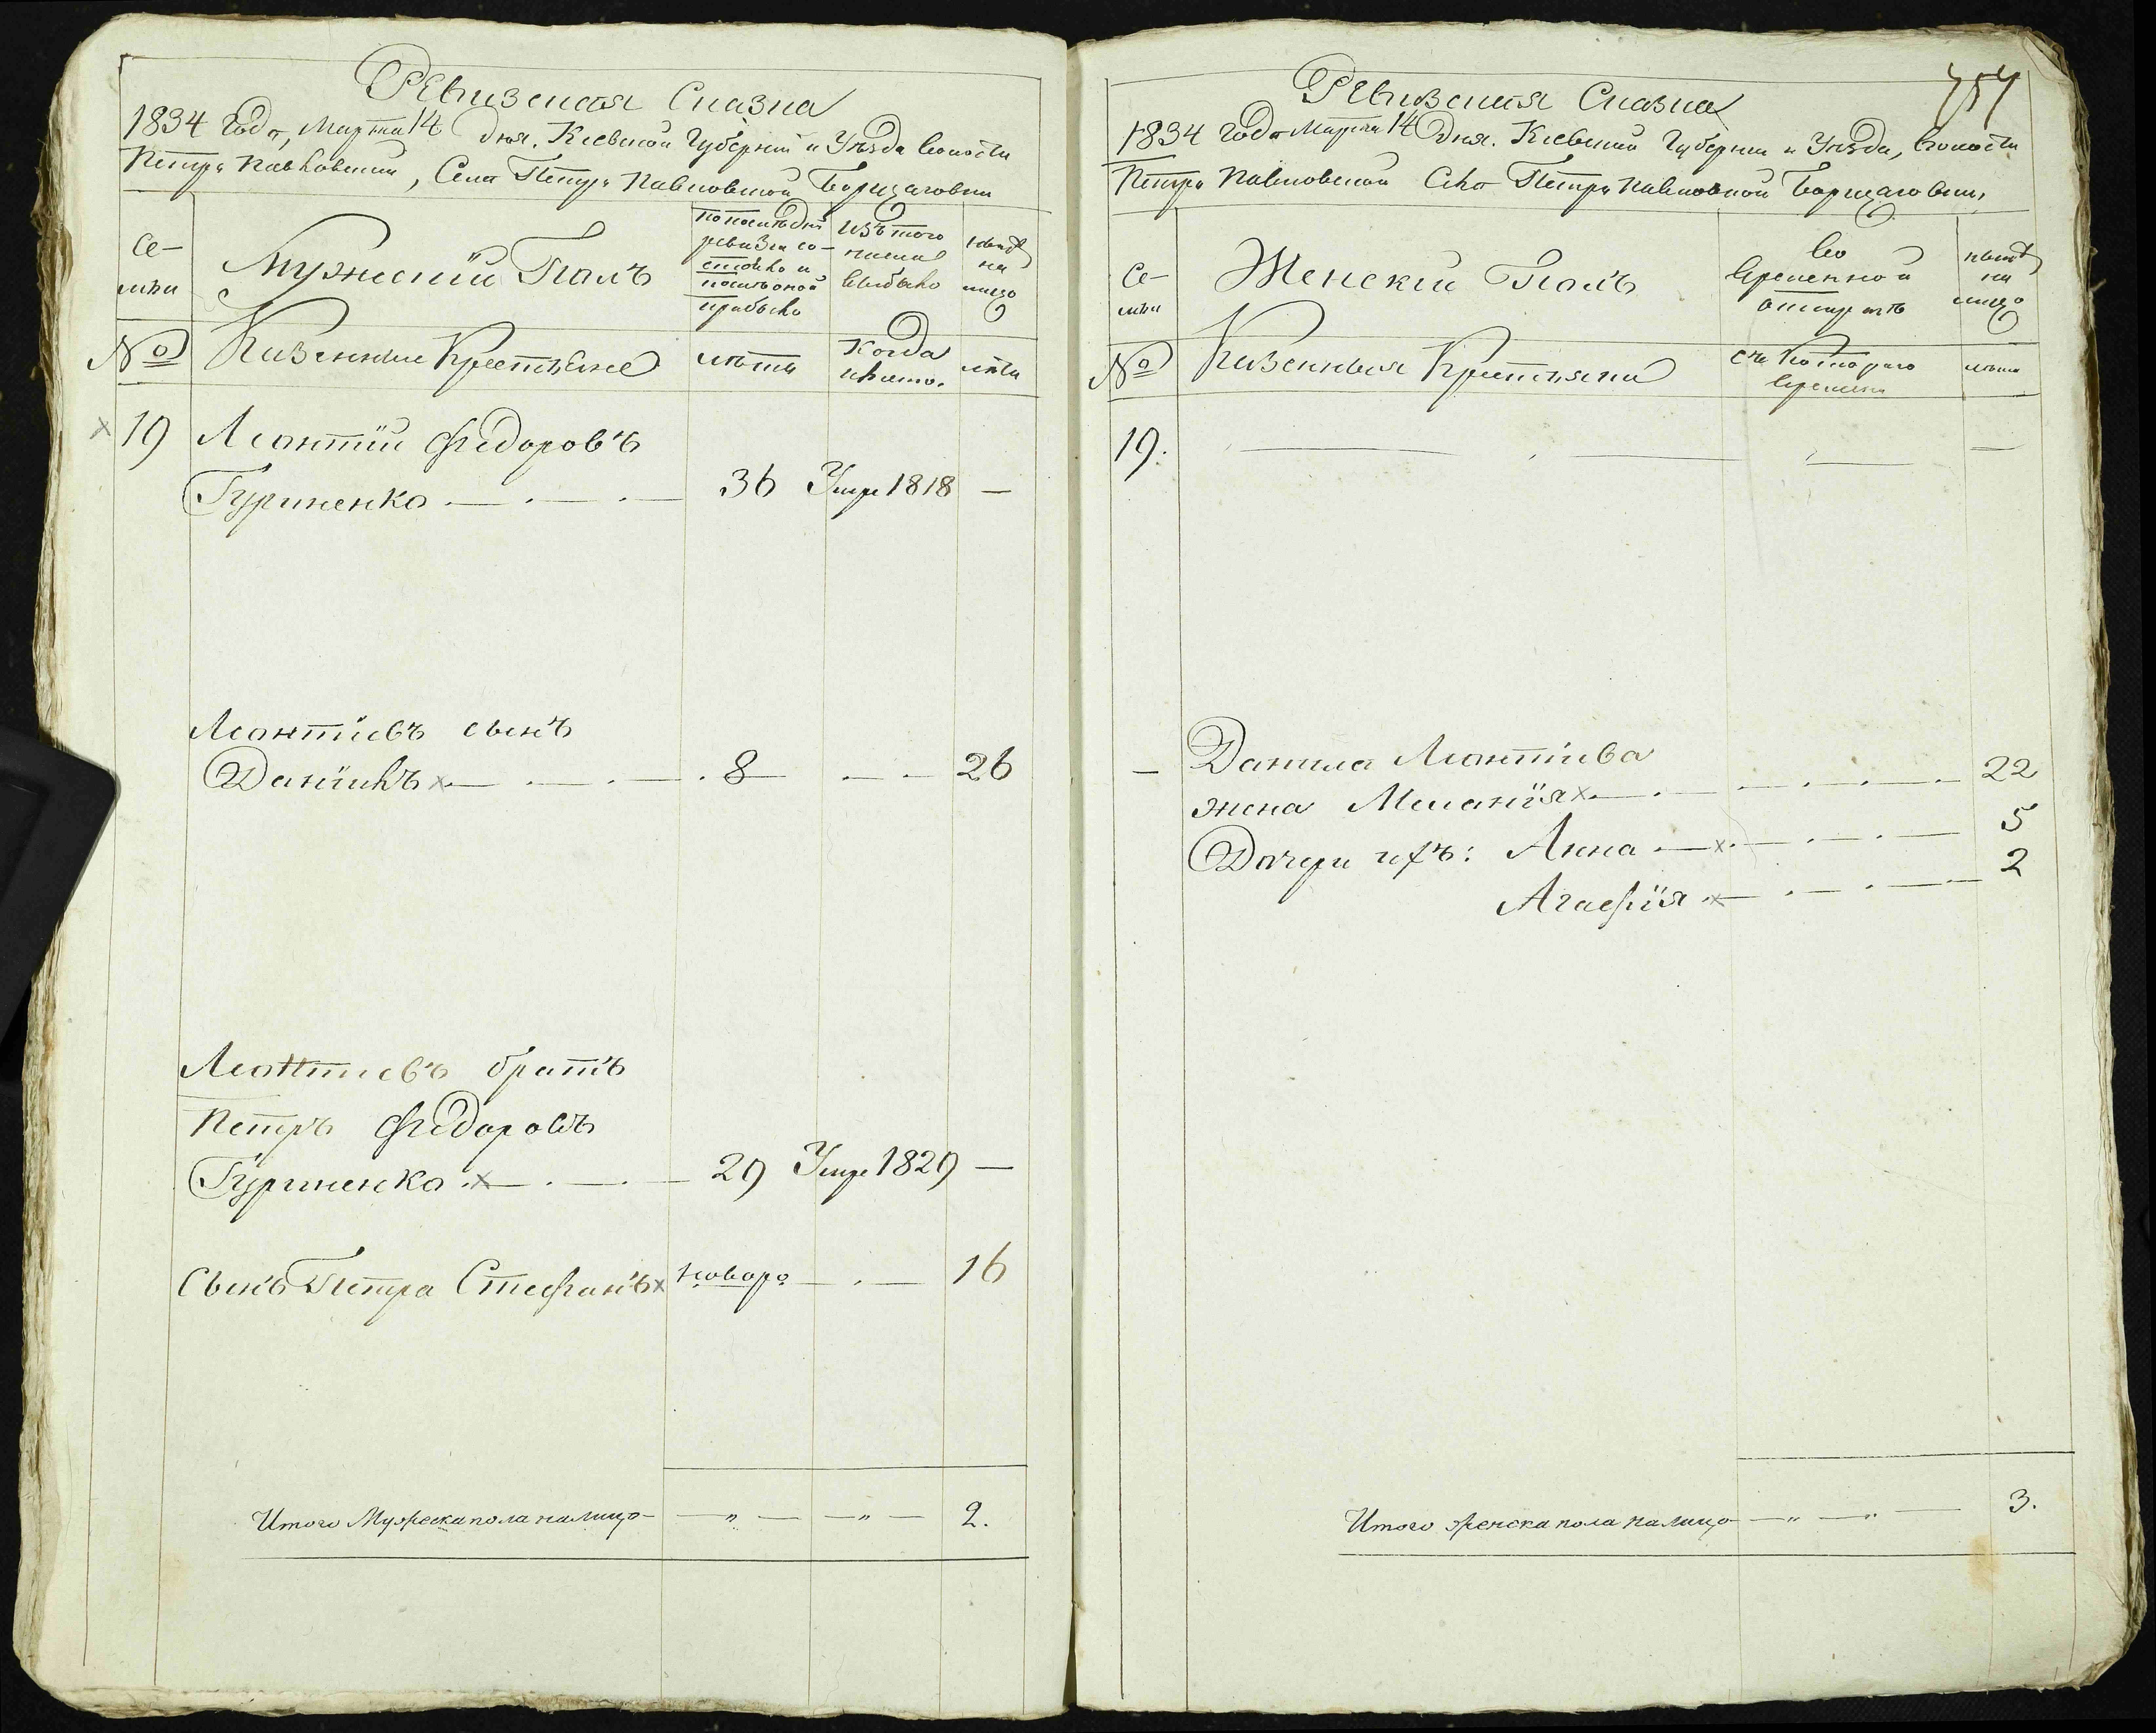 Ревизская Сказка
1834 Года, Марта 14 дня. Кіевской Губерніи и Уѣзда Волости
Петро Павловской, Села Петро Павловской Борщаговки
Се-
мьи
Мужескій Полъ
По послѣдней
ревизіи со-
стояло и
послѣ оной
прибыло
Изъ того
числа
выбыло
Нынѣ
на
лицо
№
Казенные Крестьяне
лѣта
Когда
имянно.
лѣта
19 Леонтій Федоровъ
Гуриненко 36 Умре 1818 —
Леонтіевъ сынъ
Даніилъ 8 — 26
Леонтіевъ братъ
Петръ Федоровъ
Гуриненко 29 Умре 1829 —
Сынъ Петра Стефанъ новоро — 16
Итого Мужеска пола на лицо — „ — „ — 2.
757
Ревизская Сказка
1834 года Марта 14 Дня. Кіевской Губерніи и Уѣзда, Волости
Петро Павловской Села Петро Павловской Борщаговки,
Се-
мьи
Женскій Полъ
Во
временной
отлучкѣ
нынѣ
на
лицо
№
Казенныя Крестьяне
Съ котораго
времени
лѣта
19. — — — —
Данила Леонтіева
жена Меланія 22
Дочери ихъ: Анна 5
Агафія 2
Итого женска пола на лицо — „ — „ — 3.